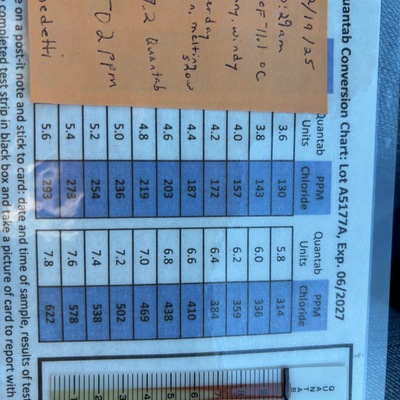 Quantab Conversion Chart: Lot A5177A, Exp. 06/2027
/19/25
:29am
°F -11.1 °C
windy
melting snow
7.2 Quantab
502 ppm
edetti
Quantab Units PPM Chloride
3.6 130
3.8 143
4.0 157
4.2 172
4.4 187
4.6 203
4.8 219
5.0 236
5.2 254
5.4 273
5.6 293
Quantab Units PPM Chloride
5.8 314
6.0 336
6.2 359
6.4 384
6.6 410
6.8 438
7.0 469
7.2 502
7.4 538
7.6 578
7.8 622
QUANTAB
7
6
5
4
3
2
1
on a post-it note and stick to card: date and time of sample, results of test
completed test strip in black box and take a picture of card to report with